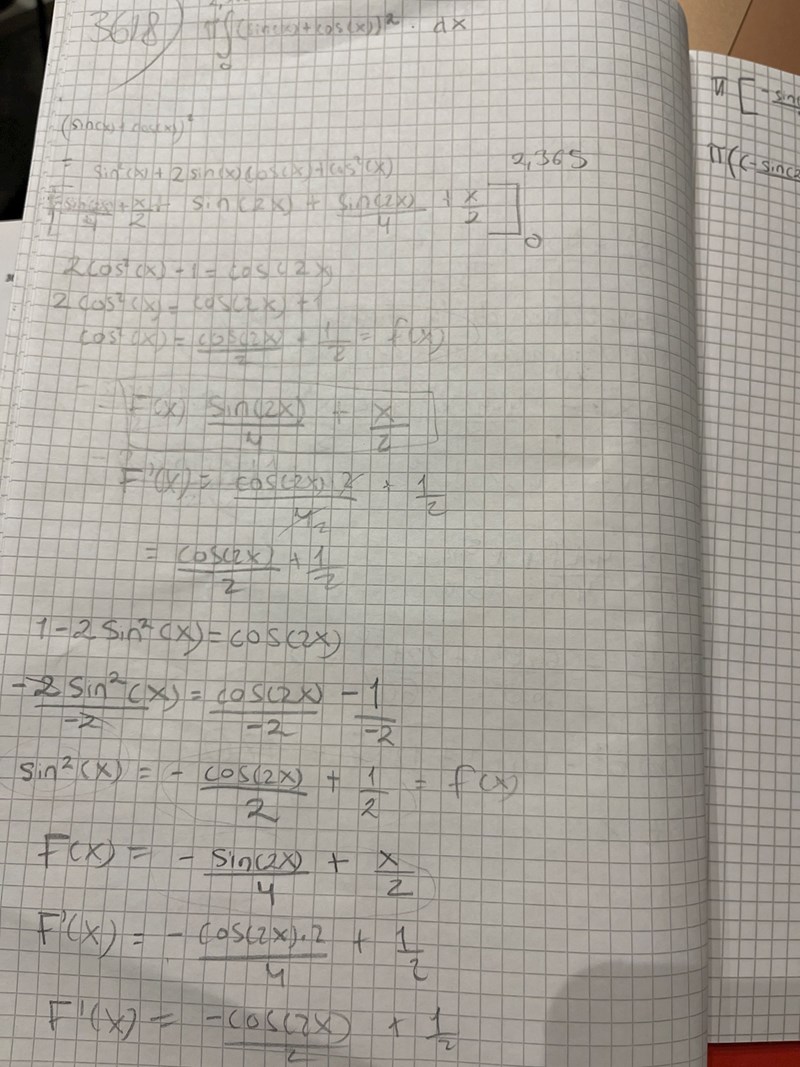 3618) π∫ (sin(x)+cos(x))² · dx
0
(sin(x)+cos(x))²
= sin²(x)+2sin(x)cos(x)+cos²(x)
+ x/2 + sin(2x) + sin(2x)/4 + x/2 ] 2,365 0
2cos²(x)-1=cos(2x)
2cos²(x)=cos(2x)+1
cos²(x)=cos(2x)/2 + 1/2 = f(x)
F(x) sin(2x)/4 + x/2
F'(x)= cos(2x)2/4 2 + 1/2
= cos(2x)/2 + 1/2
1-2sin²(x)=cos(2x)
-2sin²(x)/-2 = cos(2x)/-2 - 1/-2
sin²(x) = - cos(2x)/2 + 1/2 = f(x)
F(x) = - sin(2x)/4 + x/2
F'(x) = - cos(2x)·2/4 + 1/2
F'(x) = -cos(2x)/2 + 1/2
π [ -sin
π((-sin(2